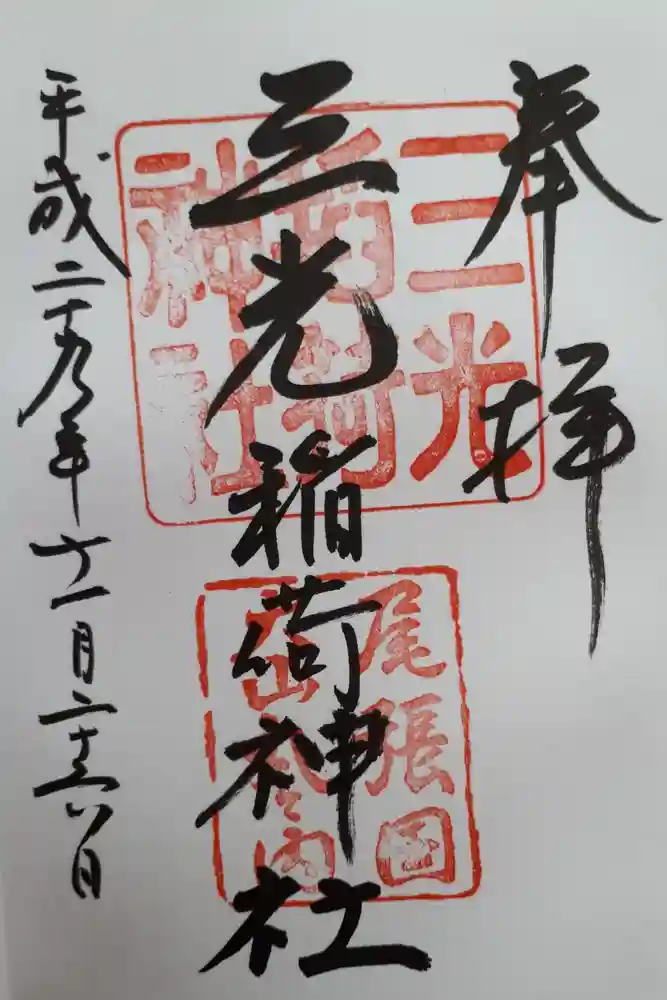 奉拝
三光稲荷神社
平成二十九年十一月二十六日
三光
稲荷
神社
尾張国
犬山